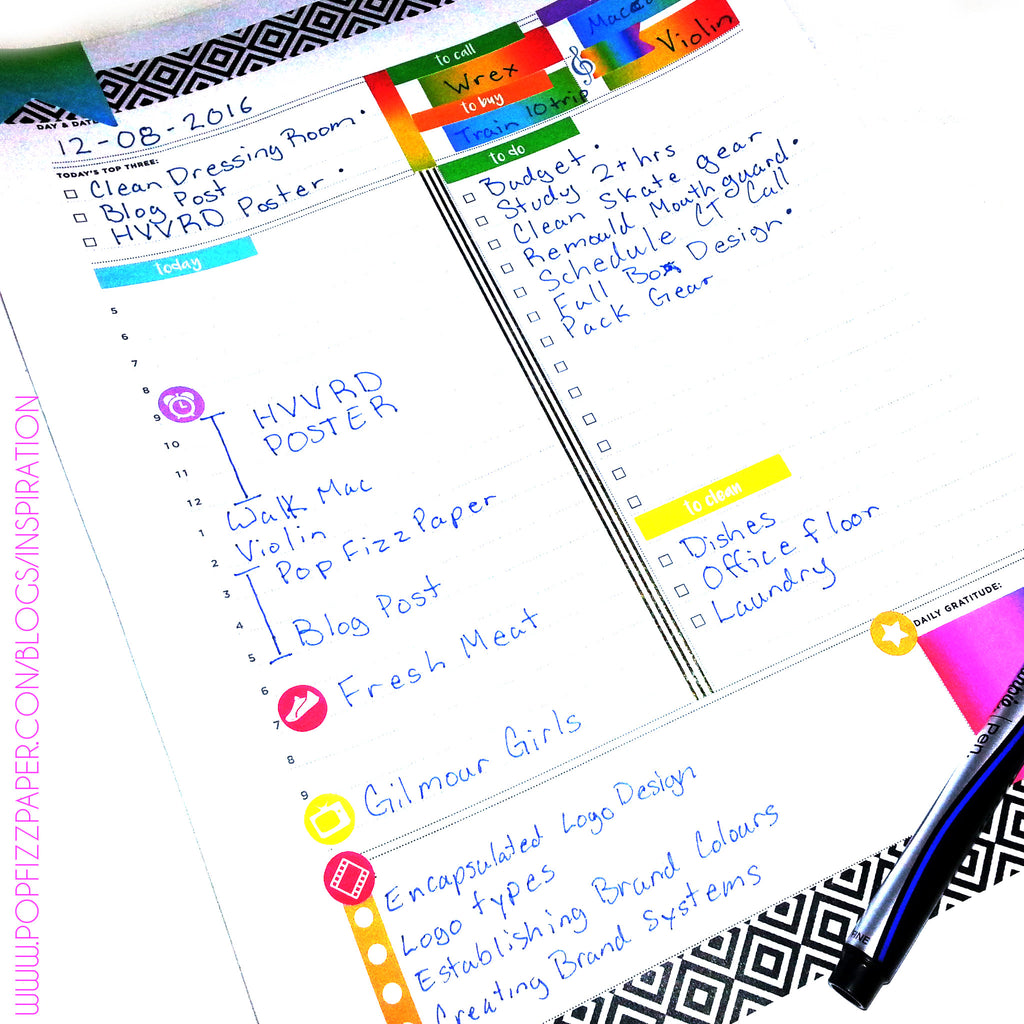 DAY & DATE
12-08-2016
TODAY'S TOP THREE:
Clean Dressing Room
Blog Post
HVVRD Poster
to call
Wrex
to buy
Train 10 trip
Violin
to do
Budget
Study 2+ hrs
Clean Skate gear
Remould Mouthguard
Schedule CT Call
Full Box Design
Pack Gear
today
5
6
7
8
9
HVVRD
POSTER
10
11
12
Walk Mac
1
Violin
2
Pop Fizz Paper
3
4
Blog Post
5
6
Fresh Meat
7
8
9
Gilmour Girls
to clean
Dishes
Office floor
Laundry
DAILY GRATITUDE:
Encapsulated Logo Design
Logo types
Establishing Brand Colours
Creating Brand Systems
Pen.
FINE
WWW.POPFIZZPAPER.CON/BLOGS/INSPIRATION